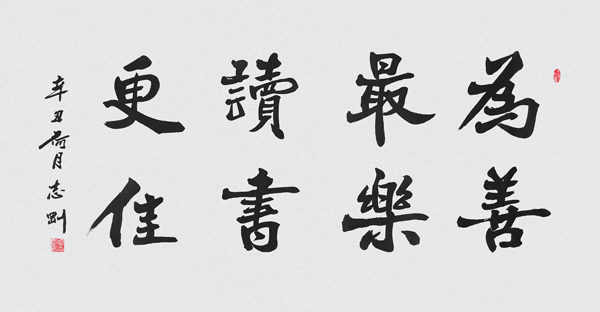 為善
最樂
讀書
更佳
辛丑荷月志剛